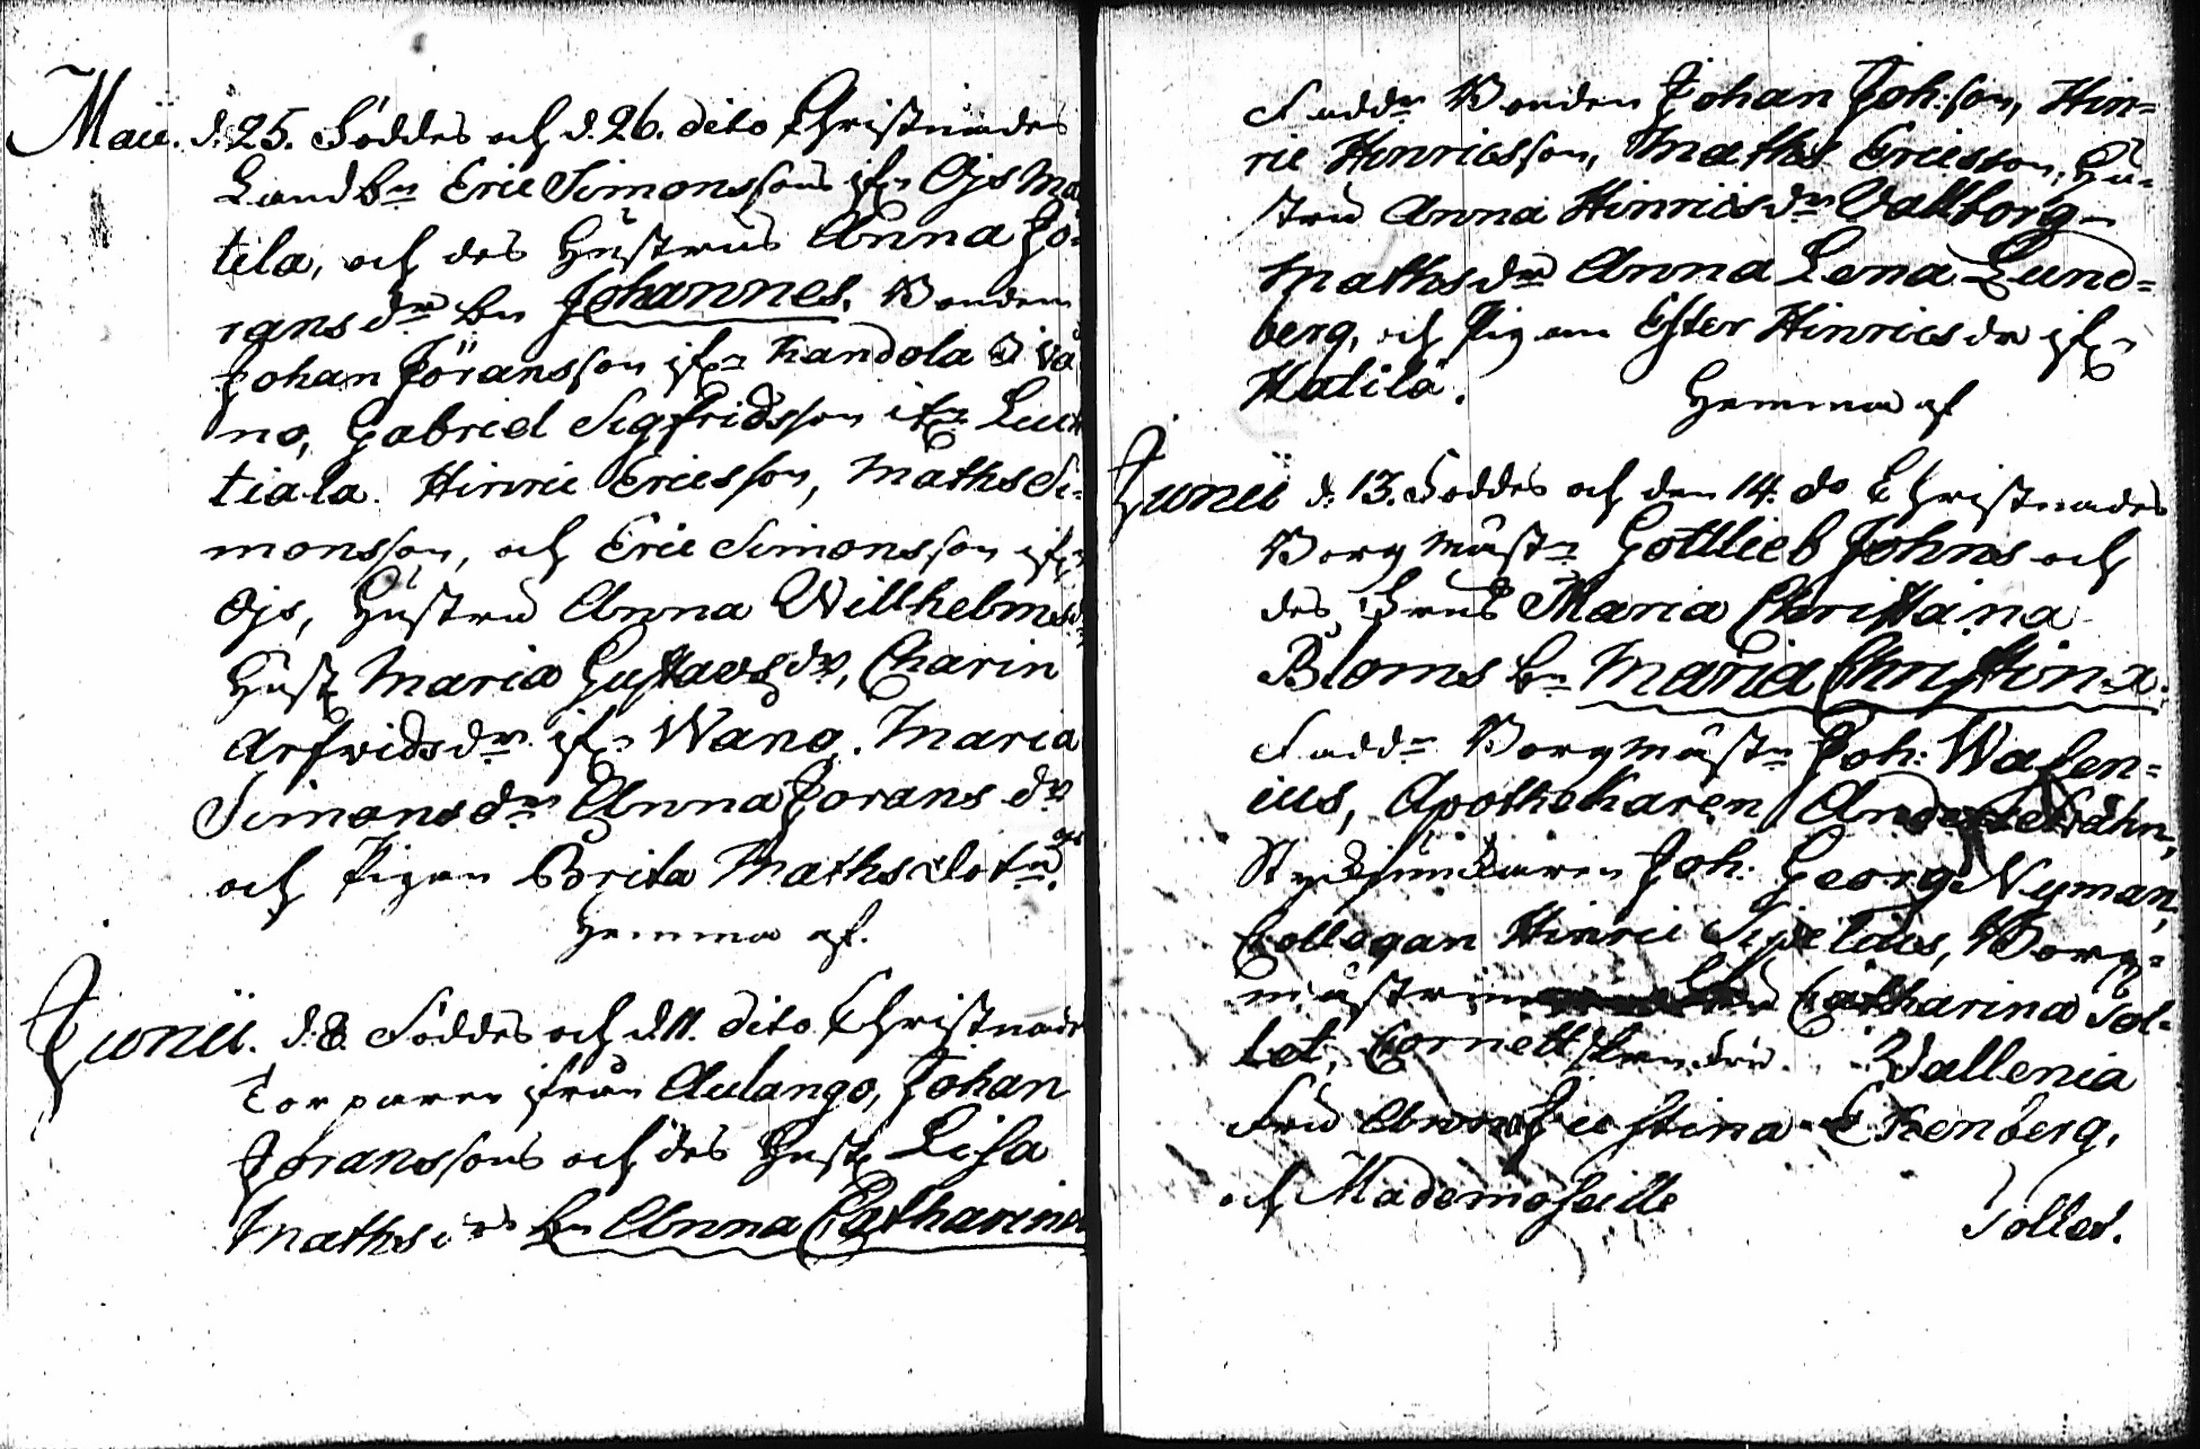 Maii. d. 25. Föddes och d. 26. dito Christnades
Landbn Eric Simonssons ifrn Ojs Ma
tila, och des Hustrus Anna Jö-
ransdr bn Johannes. Bonden
Johan Jöransson ifrn Kandola Wå
no, Gabriel Sigfridsson ifrn Luk
tiala. Hinric Ericsson, Maths Si-
monsson, och Eric Simonsson ifrn
Ojs, Hustru Anna Willhelmsdr
Hust. Maria Gustavsdr, Charin
Arfvidsdr ifrn Wåno. Maria
Simonsdr Anna Jöransdr
och Pigan Brita Mathsdotr.
Hemma af.
Junii. d. 8. Föddes och d. 11. dito Christnades
Torparen ifrån Aulango, Johan
Jöranssons och des Hust. Lisa
Mathsdrs bn Anna Catharina
Faddr Bonden Johan Joh:son, Hin-
ric Hinricsson, Maths Ericsson, Hu-
stru Anna Hinricsdr Vallborg
Mathsdr Anna Lena Lund-
berg, och Pigan Ester Hinricsdr ifrn
Katila.
Hemma af
Junii d. 13. Föddes och den 14. do Christnades
Borgmästr. Gottlieb Johns och
des Frus Maria Christina
Bloms bn Maria Christina.
Faddr Borgmästr Joh: Wasen-
ius, Apothekaren Anders
Styckjunkaren Joh: Georg Nyman,
Collegan Hinric, Borg-
mästrinnan Catharina Tol-
let, Cornettskan Fru Wallenia
Fru Anna Justina Ekenberg,
och Mademoseille
Tollet.